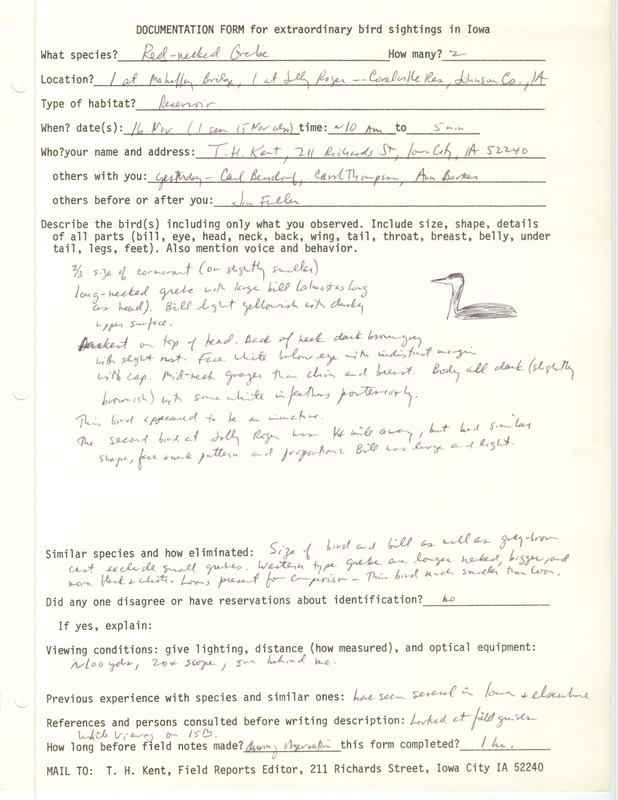 DOCUMENTATION FORM for extraordinary bird sightings in Iowa
What species? Red-necked Grebe How many? 2
Location? 1 at Mahaffey Bridge, 1 at Jolly Roger -- Coralville Res, Johnson Co., IA
Type of habitat? Reservoir
When? date(s): 16 Nov (1 seen 15 Nov also) time: ~10 Am to 5 min
Who?your name and address: T.H. Kent, 211 Richards St, Iowa City, IA 52240
others with you: yesterday - Carl Bendorf, Carol Thompson, Ann Barker
others before or after you: Jim Fuller
Describe the bird(s) including only what you observed. Include size, shape, details
of all parts (bill, eye, head, neck, back, wing, tail, throat, breast, belly, under
tail, legs, feet). Also mention voice and behavior.
2/3 size of cormorant (or slightly smaller)
long-necked grebe with large bill (almost as long
as head). Bill light yellowish with dusky
upper surface.
Darkest on top of head. Back of neck dark brown-grey
with slight rust. Face white below eye with indistinct margin
with cap. Mid-neck grayer than chin and breast. Body all dark (slightly
brownish) with some white in feathers posteriorly.
This bird appeared to be an immature.
The second bird at Jolly Roger was 1/4 mile away, but had similar
shape, face & neck pattern and proportions. Bill was large and light.
Similar species and how eliminated: Size of bird and bill as well as grey-brown
cast exclude small grebes. Western type grebe are longer necked, bigger, and
more black & white. Loons present for comparison - This bird much smaller than loon.
Did any one disagree or have reservations about identification? no
If yes, explain:
Viewing conditions: give lighting, distance (how measured), and optical equipment:
~100 yds, 20x scope, sun behind me.
Previous experience with species and similar ones: have seen several in Iowa & elsewhere
References and persons consulted before writing description: Looked at field guides
while viewing on 15th.
How long before field notes made? during observation this form completed? 1 hr.
MAIL TO: T. H. Kent, Field Reports Editor, 211 Richards Street, Iowa City IA 52240